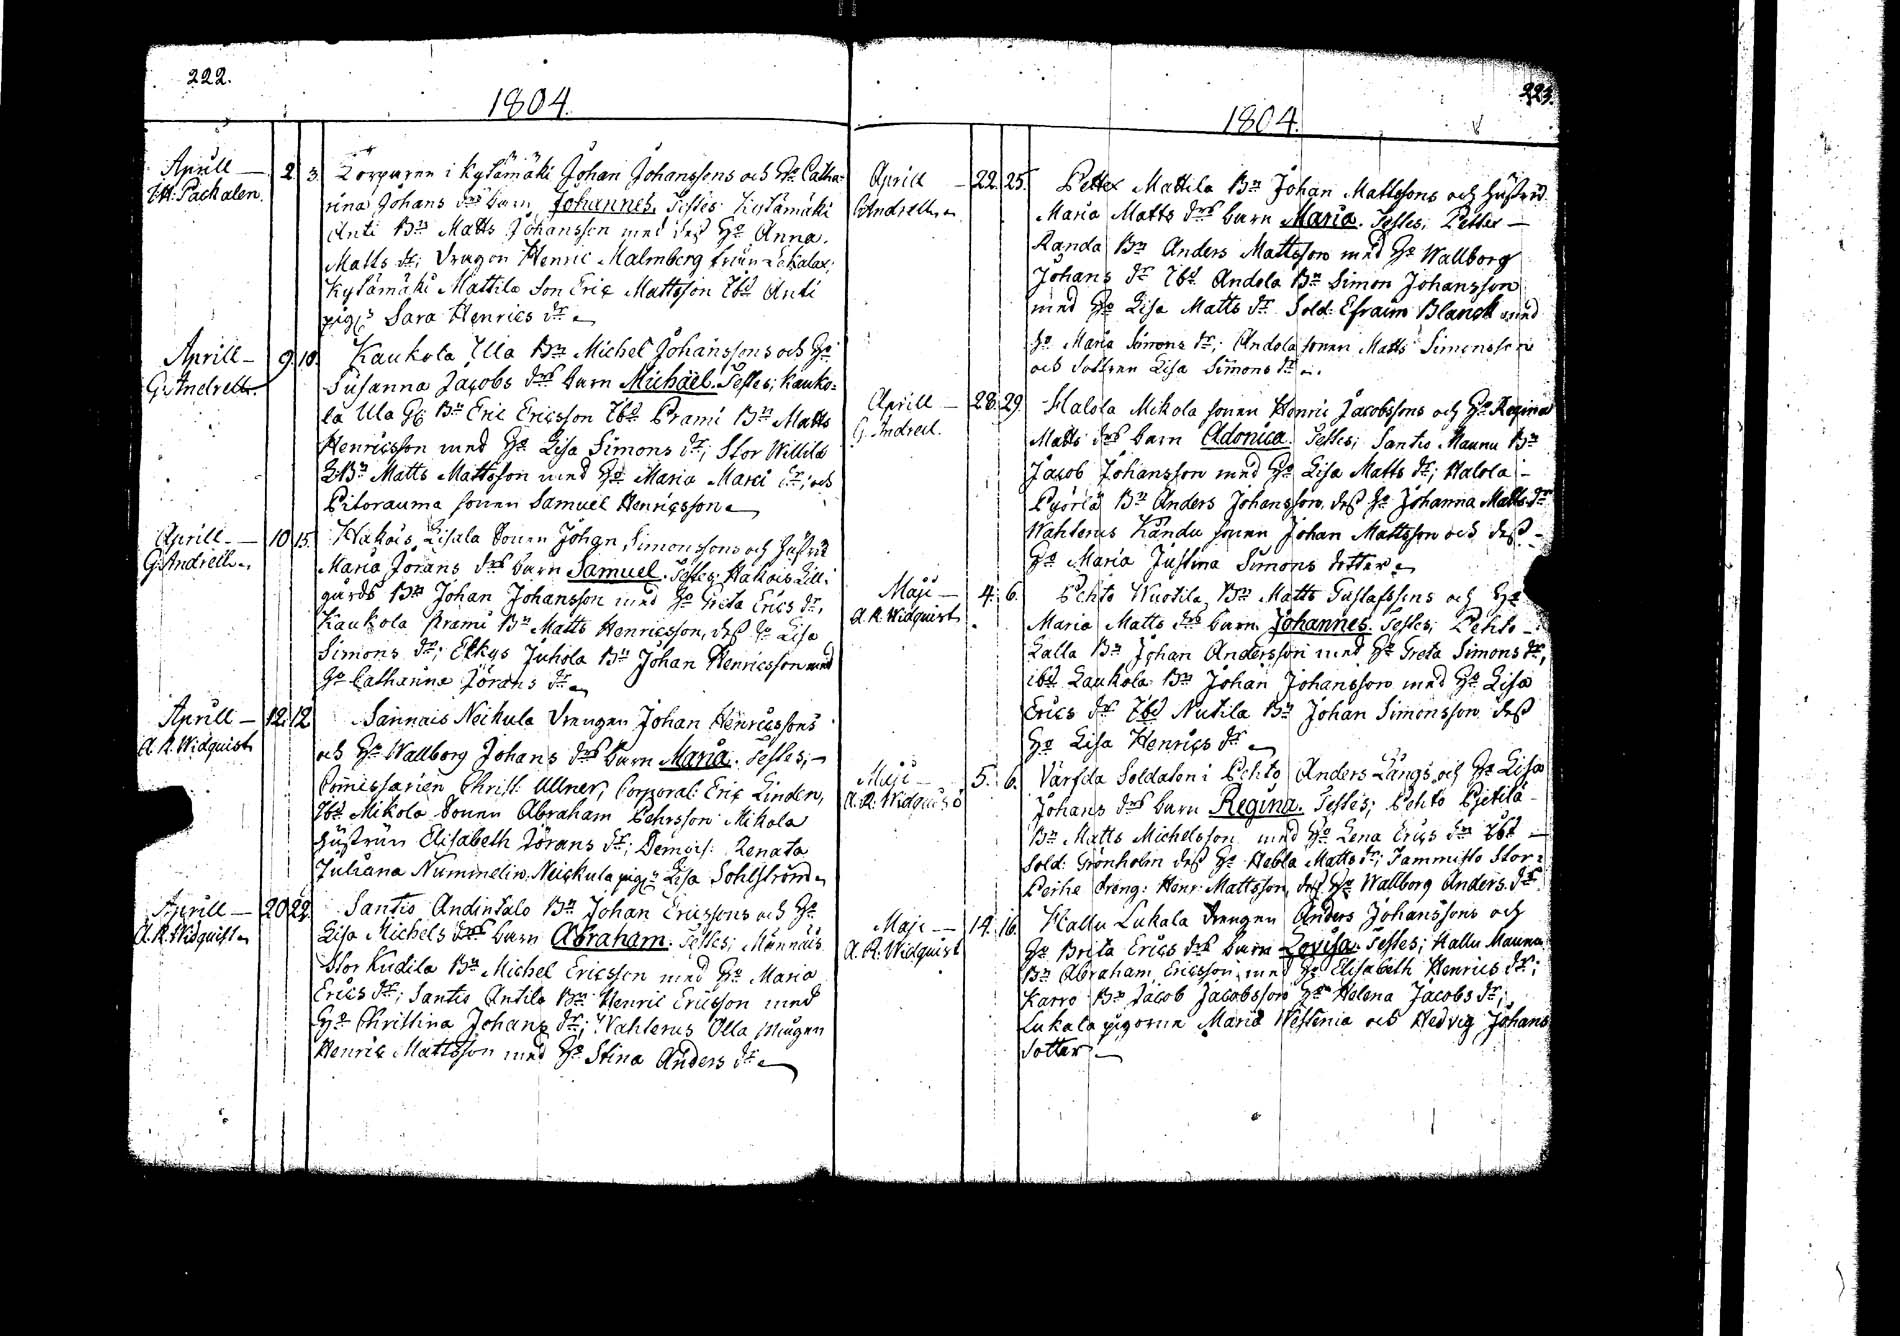 222.
1804.
Aprill — 2. 3. Torparen i Kylämäki Johan Johanssons och H:o Catha-
J. H. Pachalen. rina Johans d:rs barn Johannes. Testes: Kylämäki
Anti B:n Matts Johansson med dess H:o Anna
Matts d:r; Dragon Henric Malmberg från Letala;
Kylämäki Mattila Son Eric Mattsson Ibd Anti
pig: Sara Henrics d:r
Aprill — 9. 10. Kaukola Ula B:n Michel Johanssons och H:o
G. Andrell. Susanna Jacobs d:rs barn Michael. Testes; Kauko-
la Ula B:n Eric Ericsson Ibd Prami B:n Matts
Henricsson med H:o Lisa Simons d:r; Stor Willila
B:n Matts Mattsson med H:o Maria Marci d:r; och
Pitorauma sonen Samuel Henricsson
Aprill — 10. 15. Hakois Lisala sonen Johan Simonssons och Hustru
G. Andrell. Maria Jörans d:rs barn Samuel. Testes: Hakois Lill-
gårds B:n Johan Johansson med H:o Greta Erics d:r,
Kaukola Prami B:n Matts Henricsson, dess H:o Lisa
Simons d:r; Elkys Juhola B:n Johan Henricsson med
H:o Catharina Jörans d:r
Aprill — 12. 12. Sannais Neickula drengen Johan Henricssons
A. R. Widquist och H:o Wallborg Johans d:rs barn Maria. Testes; —
Comissarien Christ: Ullner, Corporal: Eric Linden,
Ibd Mikola sonen Abraham Pehrsson Mikola
Hustrun Elisabeth Jörans d:r; Demois: Renata
Juliana Nummelin. Neickula pig: Lisa Sohlström
Aprill — 20. 22. Santio Andintalo B:n Johan Ericssons och H:o
A. R. Widquist Lisa Michels d:rs barn Abraham. Testes; Männäis
Stor Kudila B:n Michel Ericsson med H:o Maria
Erics d:r; Santio Antila B:n Henric Ericsson med
H:o Christina Johans d:r; Wahlerus Olla Mågen
Henric Mattsson med H:o Stina Anders d:r
223.
1804.
Aprill — 22. 25. Pettex Mattila B:n Johan Mattssons och Hustru
G. Andrell Maria Matts d:rs barn Maria. Testes; Pettex —
Randa B:n Anders Mattsson med H:o Wallborg
Johans d:r Ibd Andola B:n Simon Johansson
med H:o Lisa Matts d:r Sold: Efraim Blanck med
H:o Maria Simons d:r; Andola sonen Matts Simonsson
och dottren Lisa Simons d:r
Aprill — 28. 29. Halola Mikola sonen Henric Jacobssons och H:o Regina
G. Andrell. Matts d:rs barn Adonica. Testes; Santio Maunu B:n
Jacob Johansson med H:o Lisa Matts d:r; Halola —
Pyörlä B:n Anders Johansson, dess H:o Johanna Matts d:r
Wahlerus Kändu sonen Johan Mattsson och dess
H:o Maria Justina Simons dotter
Maji — 4. 6. Pehto Wuotila B:n Matts Gustafssons och H:o
A. R. Widquist Maria Matts d:rs barn Johannes. Testes; Pehto —
Lalla B:n Johan Andersson med H:o Greta Simons d:r,
ibd Laukola B:n Johan Johansson med H:o Lisa
Erics d:r Ibd Nutila B:n Johan Simonsson dess
H:o Lisa Henrics d:r
Maji — 5. 6. Värfda Soldaten i Pehto Anders Långs och H:o Lisa
A. R. Widquist Johans d:rs barn Regina. Testes; Pehto Pjetilä —
B:n Matts Michelsson med H:o Lena Erics d:r Ibd —
Sold: Grönholm dess H:o Hebla Matts d:r; Jammisto Stor-
Perhe dreng: Henr: Mattsson, dess H:o Wallborg Anders d:r
Maji — 14. 16. Hallu Lukala drengen Anders Johanssons och
A. R. Widquist H:o Brita Erics d:rs barn Lovisa. Testes; Hallu Maunu
B:n Abraham Ericsson med H:o Elisabeth Henrics d:r;
Karro B:n Jacob Jacobsson H:o Helena Jacobs d:r;
Lukala pigorna Maria Westenia och Hedvig Johans
dotter